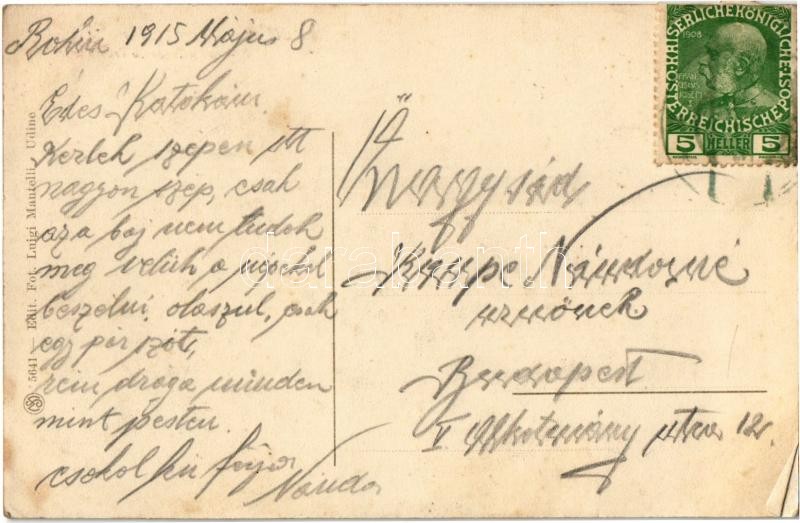 1915 Május 8
Édes Katókám
Kérlek szépen itt
nagyon szép, csak
az a baj nem tudok
meg velük a népekkel
beszélni olaszul, csak
egy pár szót,
rém drága minden
mint pesten.
csokol hű férjed
Nándor
Nagysád
Krepe Nándorné
urnőnek
Budapest
V Alkotmány utca 12.
5641 - Edit. Fot. Luigi Mantelli, Udine
KAISERLICHE KÖNIGLICHE ÖSTERREICHISCHE POST
1908
5 HELLER 5
darabanth